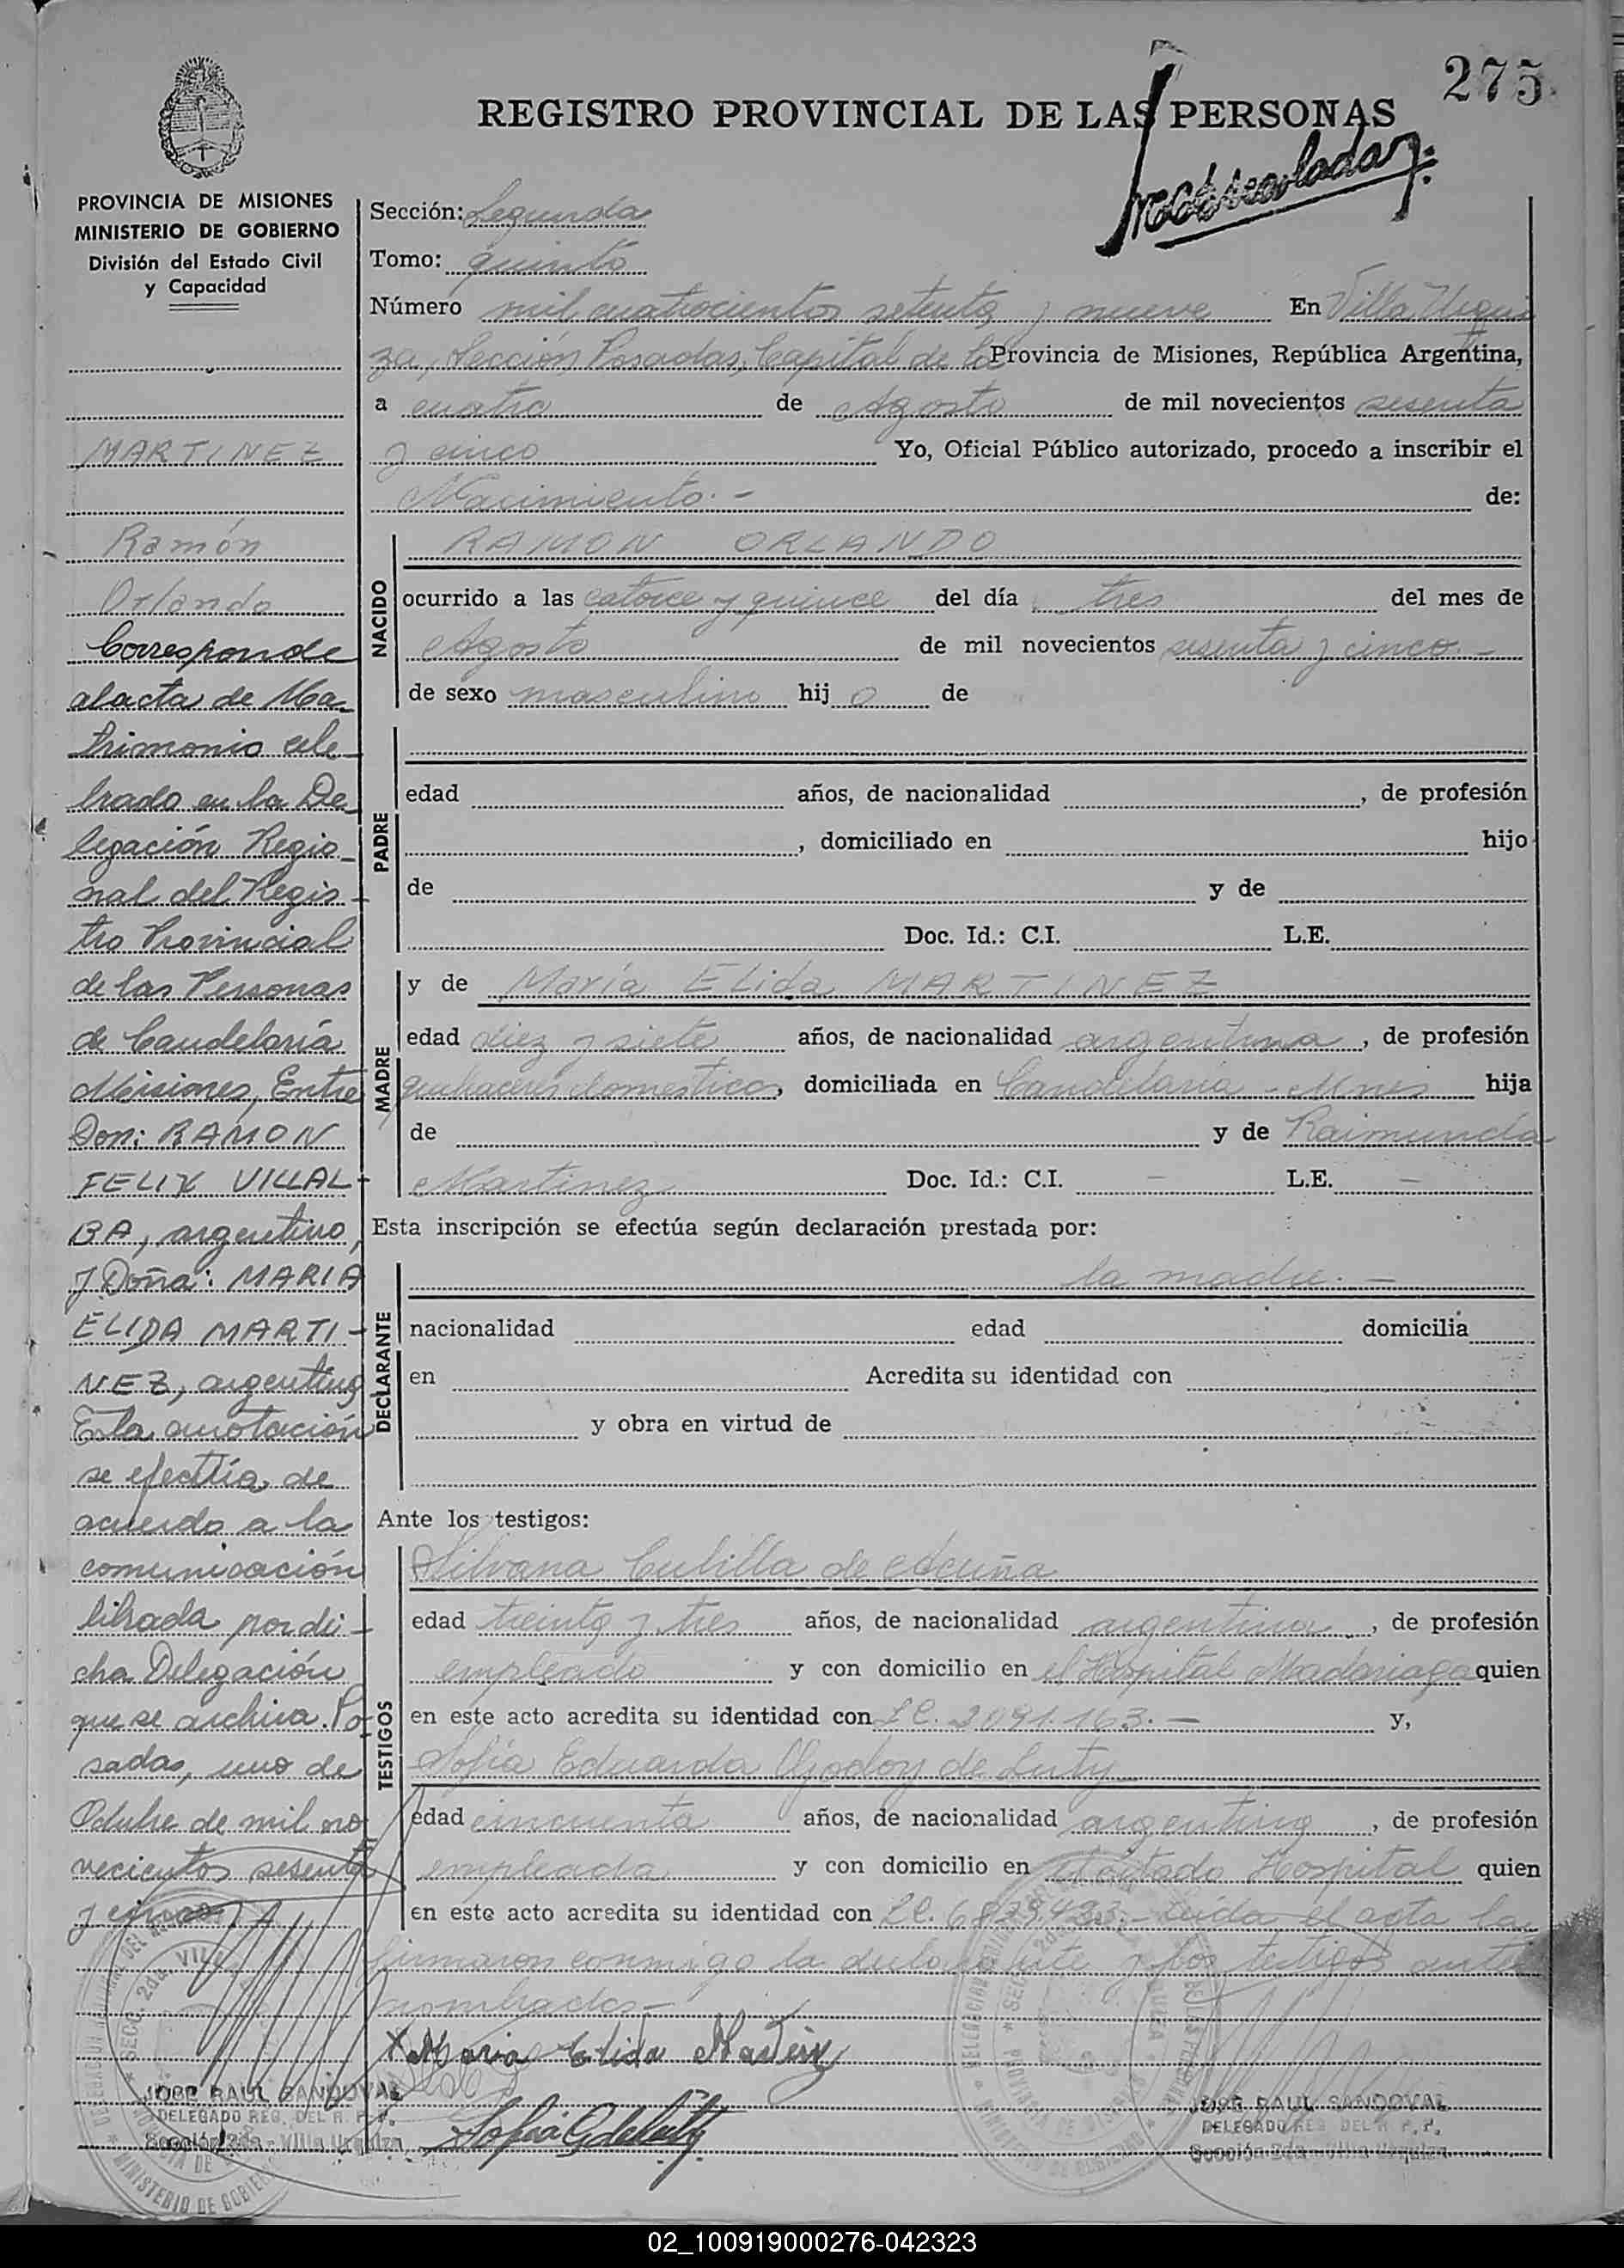 275
REGISTRO PROVINCIAL DE LAS PERSONAS
PROVINCIA DE MISIONES
MINISTERIO DE GOBIERNO
División del Estado Civil
y Capacidad
MARTINEZ
Ramón
Orlando
Corresponde
al acta de Ma-
trimonio cele-
brado en la De-
legación Regio-
nal del Regis-
tro Provincial
de las Personas
de Candelaria
Misiones, Entre
Don: RAMON
FELIX VILLAL-
BA, argentino,
y Doña: MARIA
ELIDA MARTI-
NEZ, argentina
Esta anotación
se efectúa de
acuerdo a la
comunicación
librada por di-
cha Delegación
que se archiva. Po-
sadas, uno de
Octubre de mil no-
vecientos sesenta
y cinco
Sección: Segunda
Tomo: quinto
Número mil cuatrocientos setenta y nueve En Villa Urqui
za, Sección Posadas, Capital de la Provincia de Misiones, República Argentina,
a cuatro de Agosto de mil novecientos sesenta
y cinco Yo, Oficial Público autorizado, procedo a inscribir el
Nacimiento.- de:
NACIDO
RAMON ORLANDO
ocurrido a las catorce y quince del día tres del mes de
Agosto de mil novecientos sesenta y cinco.-
de sexo masculino hijo de
PADRE
edad años, de nacionalidad , de profesión
, domiciliado en hijo
de y de
Doc. Id.: C.I. L.E.
MADRE
y de María Elida MARTINEZ
edad diez y siete años, de nacionalidad argentina, de profesión
quehaceres domesticos, domiciliada en Candelaria - Mnes hija
de y de Raimunda
Martinez Doc. Id.: C.I. - L.E. -
Esta inscripción se efectúa según declaración prestada por:
DECLARANTE
la madre.-
nacionalidad edad domicilia
en Acredita su identidad con
y obra en virtud de
Ante los testigos:
TESTIGOS
Silvana Cubilla de Acuña
edad treinta y tres años, de nacionalidad argentina, de profesión
empleada y con domicilio en el Hospital Madariaga quien
en este acto acredita su identidad con LC. 2091.163.- y,
Sofía Eduarda Godoy de
edad cincuenta años, de nacionalidad argentina, de profesión
empleada y con domicilio en el citado Hospital quien
en este acto acredita su identidad con LC. Leída el acta la
firmaron conmigo la declarante y los testigos ante
nombrados.-
x Maria Elida Martinez
JOSE RAUL SANDOVAL
DELEGADO REG. DEL R. P. P.
Sección 2da - Villa Urquiza
JOSE RAUL SANDOVAL
DELEGADO REG DEL R. P. P.
Sección 2da - Villa Urquiza
MINISTERIO DE GOBIERNO
02_100919000276-042323